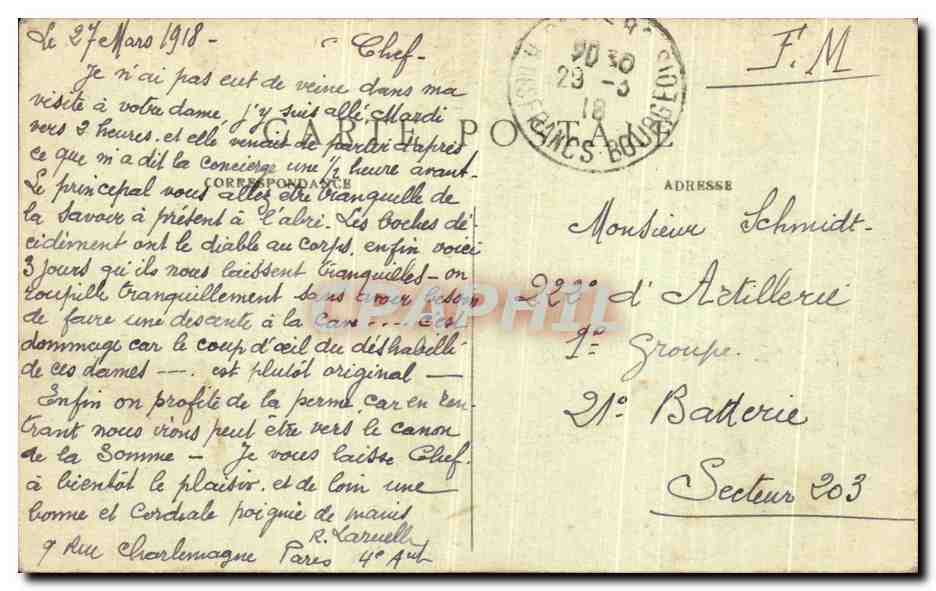 Le 27 Mars 1918 -
Chef -
Je n'ai pas eut de veine dans ma
visite à votre dame, j'y suis allé Mardi
vers 2 heures. et elle venait de partir d'après
ce que m'a dit la concierge une 1/2 heure avant.
Le princepal vous allez être tranquille de
la savoir à présent à l'abri. Les boches dé-
cidèment ont le diable au corps. enfin voici
3 jours qu'ils nous laissent tranquilles - on
roupille tranquillement sans avoir besoin
de faire une descente à la cave .... c'est
dommage car le coup d'œil du déshabillé
de ces dames --- . est plutôt original -
Enfin on profite de la perme, car en ren-
trant nous irons peut être vers le canon
de la Somme - Je vous laisse Chef.
à bientôt le plaisir. et de loin une
bonne et Cordiale poignie de mains
R. Laruelle
9 Rue Charlemagne Paris 4e Arrt
CARTE POSTALE
CORRESPONDANCE
ADRESSE
F. M
20 30
29 - 3
18
FRANCS-BOURGEOIS
Monsieur Schmidt -
222e d'Artillerie
1er Groupe.
21e Batterie
Secteur 203
CPAPHIL